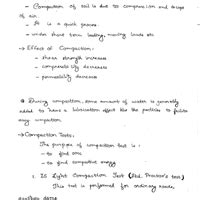 - Compaction of soil is due to compression and escape
of air.
- It is a quick process.
- under short term loading, moving loads etc
→ Effect of Compaction:
- shear strength increases
- compressibility decreases
- permeability decreases
During compaction, some amount of water is generally
added to have a lubrication effect like the particles to
any
→ Compaction Tests:
The purpose of compaction test is :
- to find OMC
- to find compactive energy
1. IS Light Compaction Test (Std. Proctor's test)
This test is performed for ordinary roads.